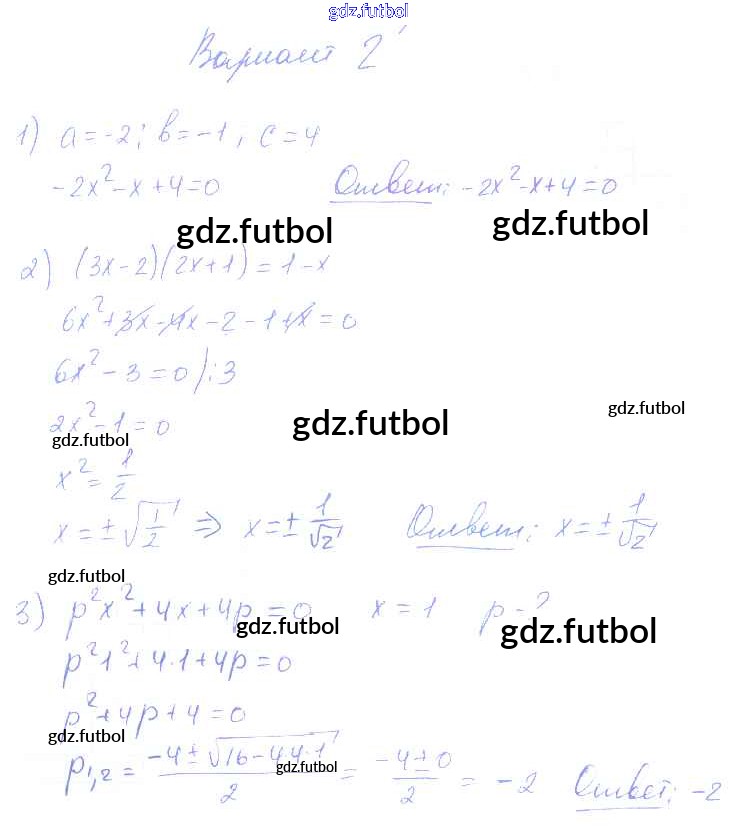 gdz.futbol
Вариант 2
1) a = -2; b = -1, c = 4
-2x² - x + 4 = 0 Ответ: -2x² - x + 4 = 0
gdz.futbol gdz.futbol
2) (3x - 2)(2x + 1) = 1 - x
6x² + 3x - 4x - 2 - 1 + x = 0
6x² - 3 = 0 |:3
2x² - 1 = 0 gdz.futbol gdz.futbol
gdz.futbol
x² = 1/2
x = ±√(1/2) ⇒ x = ± 1/√2 Ответ: x = ± 1/√2
gdz.futbol
3) p²x² + 4x + 4p = 0 x = 1 p - ?
gdz.futbol gdz.futbol
p²1² + 4·1 + 4p = 0
p² + 4p + 4 = 0
gdz.futbol
p₁,₂ = (-4 ± √(16 - 4·4·1))/2 = (-4 ± 0)/2 = -2 Ответ: -2
gdz.futbol